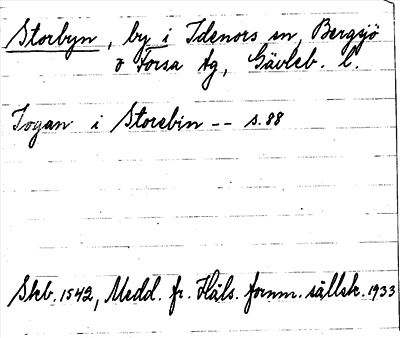 Storbyn, by i Idenors sn, Bergsjö
o Forsa tg, Gävleb. l.
Jogan i Storebin -- s. 88
Skb. 1542, Medd. fr. Häls. fornm. sällsk. 1933